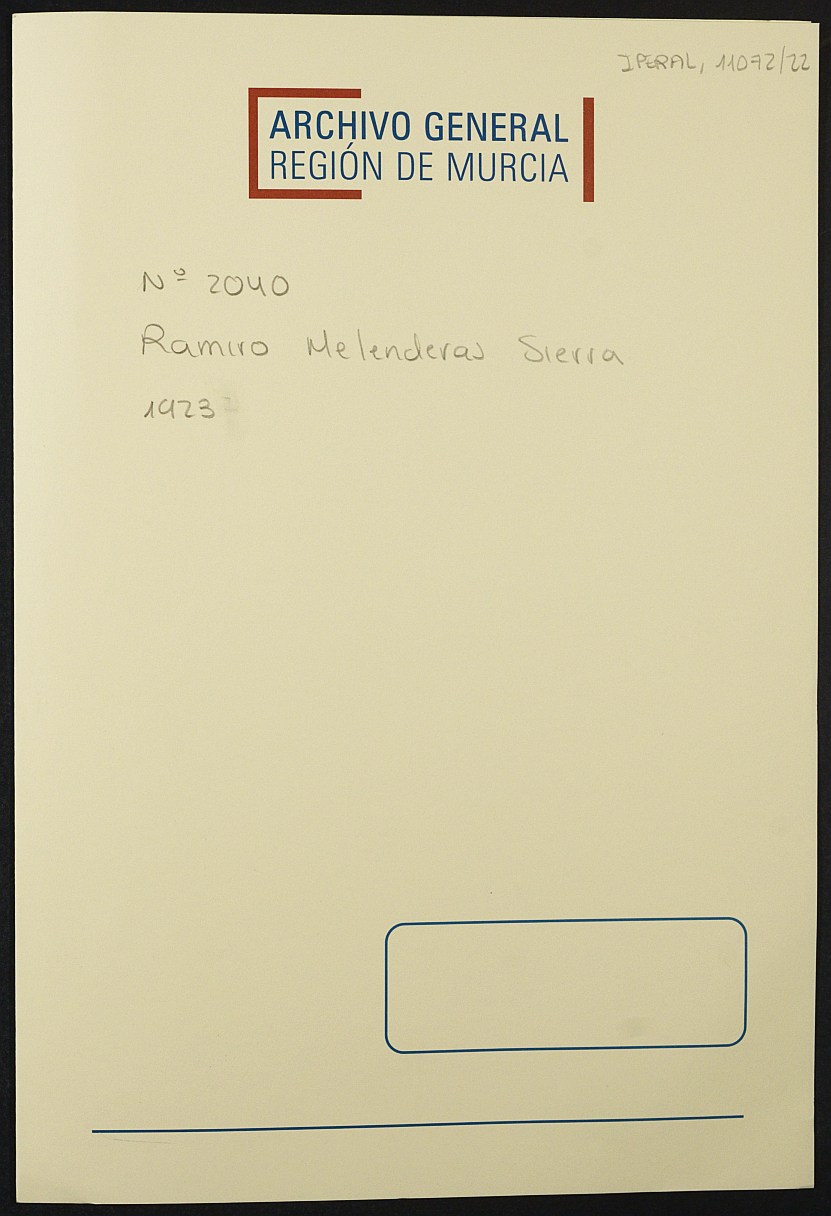 IPERAL, 11072/22
ARCHIVO GENERAL
REGIÓN DE MURCIA
Nº 2040
Ramiro Melenderas Sierra
1923